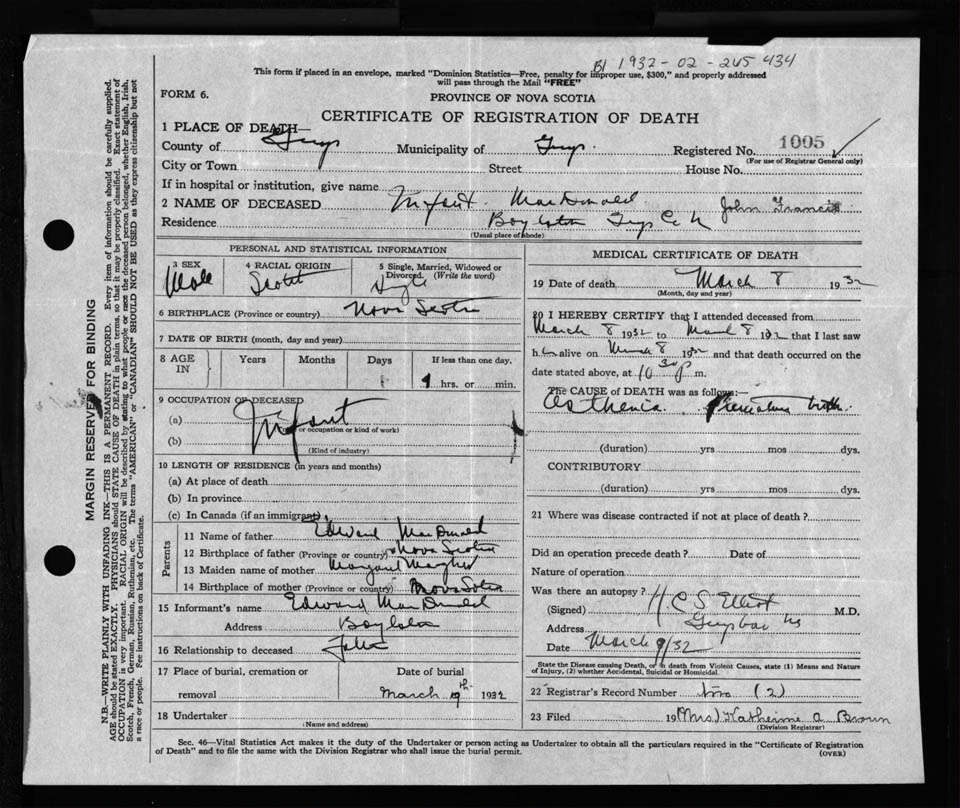 B1 1932-02-265434
This form if placed in an envelope, marked "Dominion Statistics—Free, penalty for improper use, $300," and properly addressed
will pass through the Mail "FREE"
FORM 6.
PROVINCE OF NOVA SCOTIA
CERTIFICATE OF REGISTRATION OF DEATH
1 PLACE OF DEATH—
County of Guys Municipality of Guys. Registered No. 1005
(For use of Registrar General only)
City or Town Street House No.
If in hospital or institution, give name
2 NAME OF DECEASED Infant MacDonald John Francis
Residence Boylston Guys Co
(Usual place of abode)
PERSONAL AND STATISTICAL INFORMATION
3 SEX Male 4 RACIAL ORIGIN 5 Single, Married, Widowed or
Divorced. (Write the word) Single
6 BIRTHPLACE (Province or country) Nova Scotia
7 DATE OF BIRTH (month, day and year)
8 AGE IN Years Months Days If less than one day,
hrs. or min.
9 OCCUPATION OF DECEASED
(a) Infant
(Trade or occupation or kind of work)
(b)
(Kind of industry)
10 LENGTH OF RESIDENCE (in years and months)
(a) At place of death
(b) In province
(c) In Canada (if an immigrant)
Parents
11 Name of father Edward MacDonald
12 Birthplace of father (Province or country) Nova Scotia
13 Maiden name of mother Margaret
14 Birthplace of mother (Province or country) Nova Scotia
15 Informant's name Edward MacDonald
Address Boylston
16 Relationship to deceased Father
17 Place of burial, cremation or Date of burial
removal March 1932
18 Undertaker
(Name and address)
MEDICAL CERTIFICATE OF DEATH
19 Date of death March 8 1932
(Month, day and year)
20 I HEREBY CERTIFY that I attended deceased from
March 8 1932 to March 8 1932 that I last saw
h alive on March 8 1932 and that death occurred on the
date stated above, at 10 30 p m.
The CAUSE of DEATH was as follows:
Asthenia. Premature birth.
(duration) yrs mos dys.
CONTRIBUTORY
(duration) yrs mos dys.
21 Where was disease contracted if not at place of death?
Did an operation precede death? Date of
Nature of operation
Was there an autopsy?
(Signed) H. C. S. Elliot M.D.
Address Guysboro NS
Date March 9/32
State the Disease causing Death, or in death from Violent Causes, state (1) Means and Nature
of Injury, (2) whether Accidental, Suicidal or Homicidal.
22 Registrar's Record Number two (2)
23 Filed 19 (Mrs) Katherine A Brown
(Division Registrar)
Sec. 46—Vital Statistics Act makes it the duty of the Undertaker or person acting as Undertaker to obtain all the particulars required in the "Certificate of Registration
of Death" and to file the same with the Division Registrar who shall issue the burial permit.
(OVER)
MARGIN RESERVED FOR BINDING
N.B.—WRITE PLAINLY WITH UNFADING INK—THIS IS A PERMANENT RECORD. Every item of information should be carefully supplied.
AGE should be stated EXACTLY. PHYSICIANS should STATE CAUSE OF DEATH in plain terms, so that it may be properly classified. Exact statement of
OCCUPATION is very important. RACIAL ORIGIN will be described by stating to what people or race the deceased person belonged, whether English, Irish,
Scotch, French, German, Russian, Ruthenian, etc. The terms "AMERICAN" or "CANADIAN" SHOULD NOT BE USED as they express citizenship but not
a race or people. See instructions on back of Certificate.